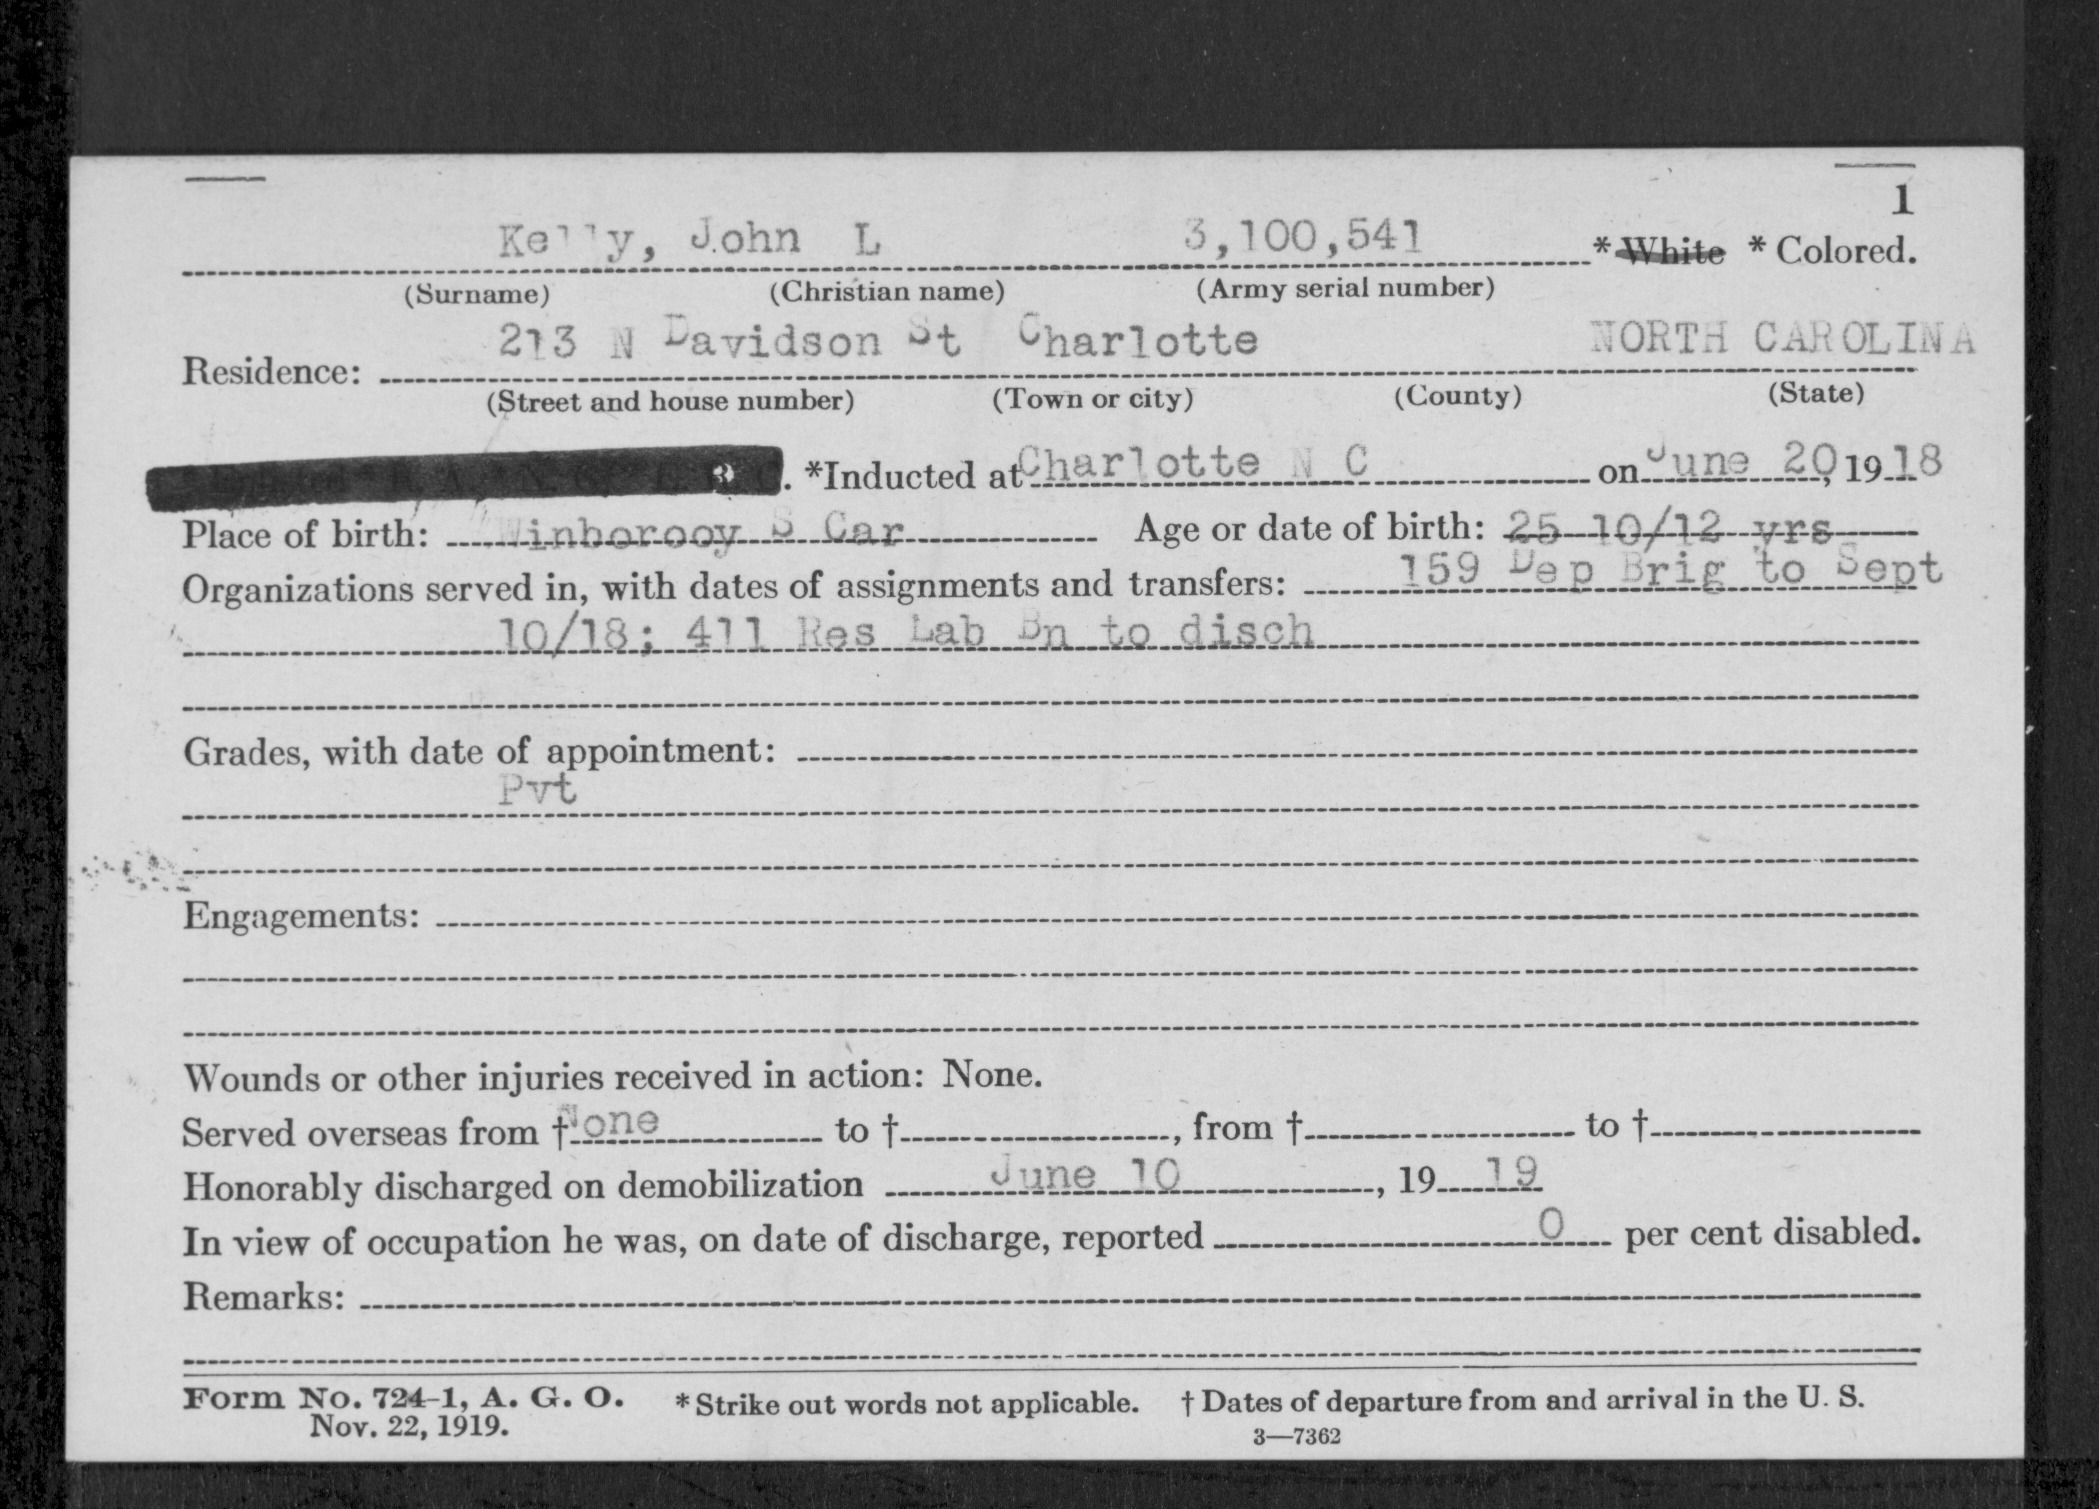 1
Kelly, John L 3,100,541 * White * Colored.
(Surname) (Christian name) (Army serial number)
213 N Davidson St Charlotte NORTH CAROLINA
Residence:
(Street and house number) (Town or city) (County) (State)
*Inducted at Charlotte N C on June 20, 1918
Place of birth: Winborooy S Car Age or date of birth: 25 10/12 yrs
Organizations served in, with dates of assignments and transfers: 159 Dep Brig to Sept
10/18; 411 Res Lab Bn to disch
Grades, with date of appointment:
Pvt
Engagements:
Wounds or other injuries received in action: None.
Served overseas from † None to †, from † to †
Honorably discharged on demobilization June 10, 19 19
In view of occupation he was, on date of discharge, reported 0 per cent disabled.
Remarks:
Form No. 724-1, A. G. O. * Strike out words not applicable. † Dates of departure from and arrival in the U. S.
Nov. 22, 1919. 3—7362